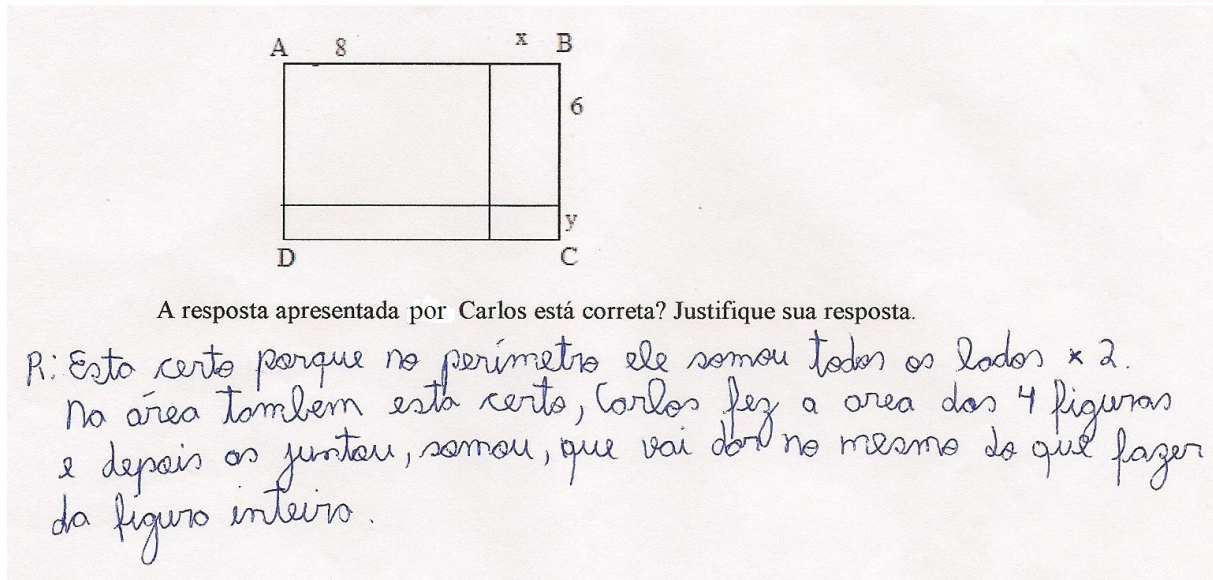 A 8 x B
6
y
D C
A resposta apresentada por Carlos está correta? Justifique sua resposta.
R: Esta certo porque no perímetro ele somou todos os lados x 2.
Na área tambem está certo, Carlos fez a area das 4 figuras
e depois as juntou, somou, que vai dar no mesmo do que fazer
da figura inteira.